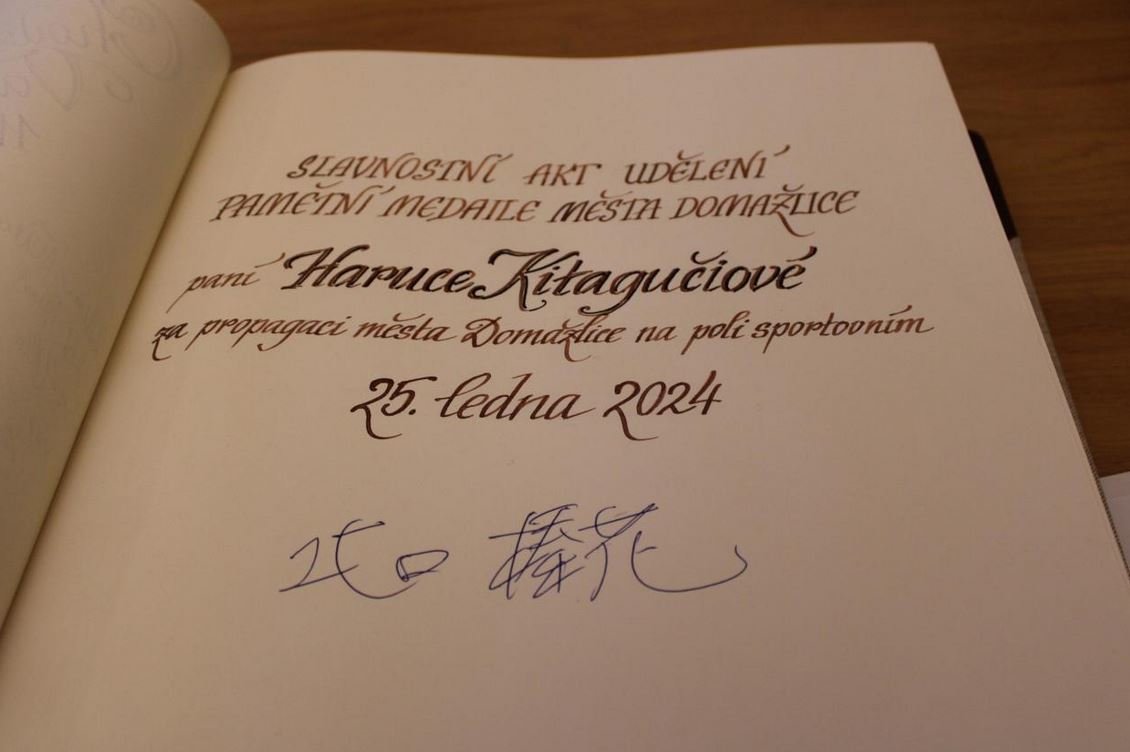 SLAVNOSTNÍ AKT UDĚLENÍ
PAMĚTNÍ MEDAILE MĚSTA DOMAŽLICE
paní Haruce Kitagučiové
za propagaci města Domažlice na poli sportovním
25. ledna 2024
北口 榛花